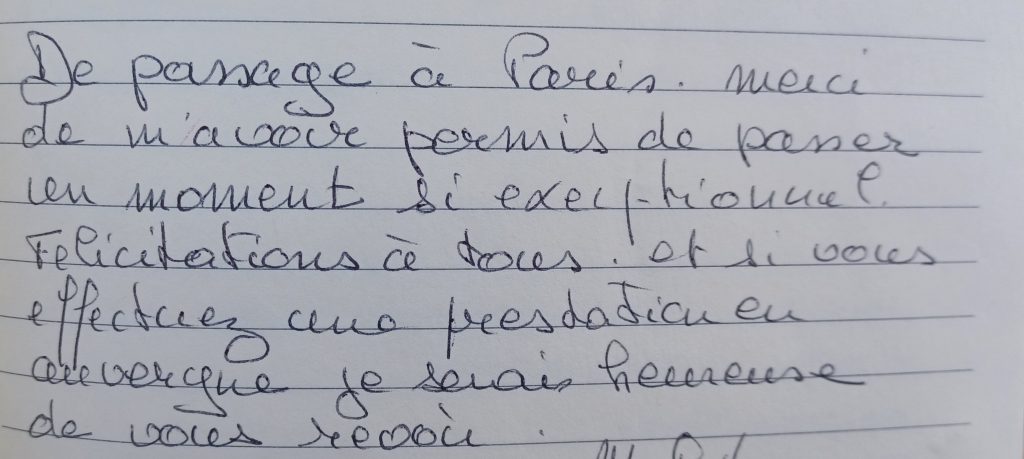 De passage à Paris. merci
de m'avoir permis de passer
un moment si exceptionnel.
Félicitations à tous. et si vous
effectuez une prestation en
auvergne je serais heureuse
de vous revoir.